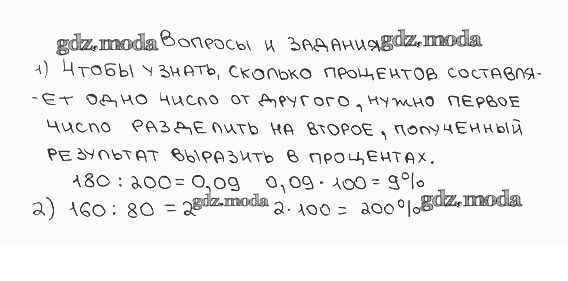 gdz.moda Вопросы и задания gdz.moda
1) Чтобы узнать, сколько процентов составля-
-ет одно число от другого, нужно первое
число разделить на второе, полученный
результат выразить в процентах.
180 : 200 = 0,09 0,09 · 100 = 9%
2) 160 : 80 = 2 gdz.moda 2 · 100 = 200% gdz.moda